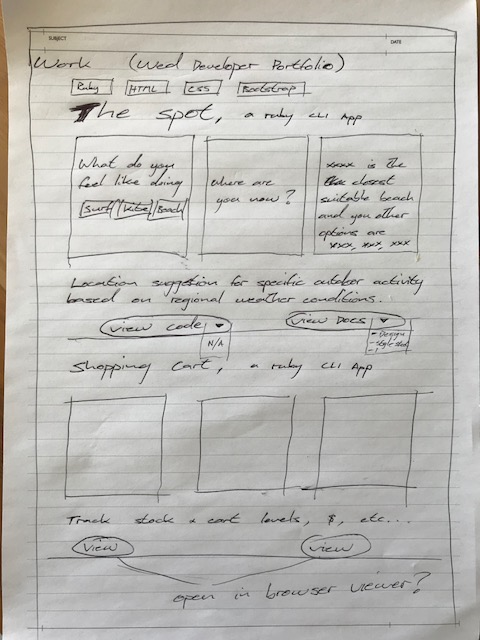 SUBJECT
DATE
Work (Wed Developer Portfolio)
Ruby HTML CSS Bootstrap
The spot, a ruby CLI App
What do you
feel like doing
Surf Kite Beach
where are
you now?
xxxx is the
closest
suitable beach
and you other
options are
xxx, xxx, xxx
Location suggestion for specific outdoor activity
based on regional weather conditions.
View code
N/A
View Docs
- Design
Shopping Cart, a ruby CLI App
Track stock & cart levels, $, etc...
View
view
open in browser viewer?